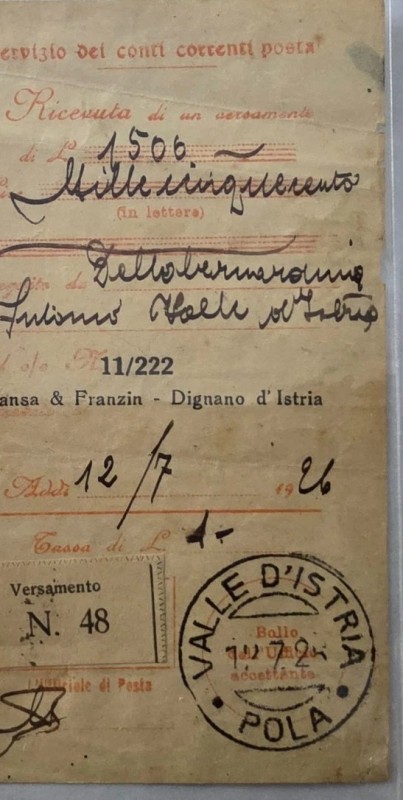 ervizio dei conti correnti posta
Ricevuta di un versamento
di L. 1506
Millecinquecento
(in lettere)
da Dellabernardina
Antonio Valle d'Istria
11/222
ansa & Franzin - Dignano d'Istria
Addì 12/7 1926
Tassa di L. 1-
Versamento
N. 48
VALLE D'ISTRIA
Bollo
accettante
POLA
L'Ufficiale di Posta